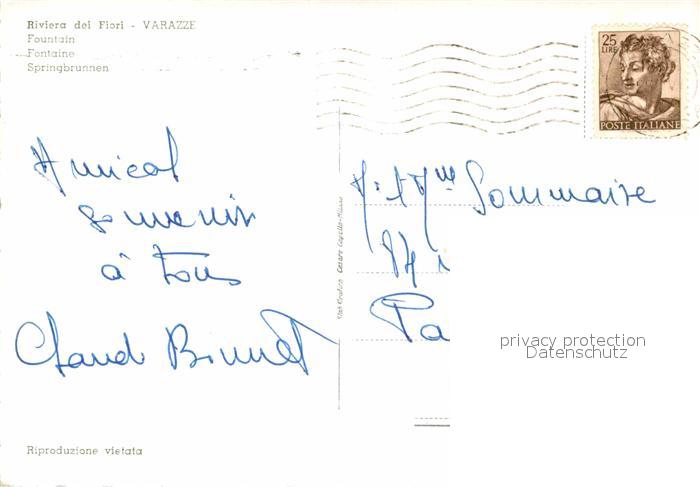 Riviera dei Fiori - VARAZZE
Fountain
Fontaine
Springbrunnen
25
LIRE
POSTE ITALIANE
Amical
souvenir
à tous
Claude
M. & Mme Sommaire
Pa
privacy protection
Datenschutz
Riproduzione vietata